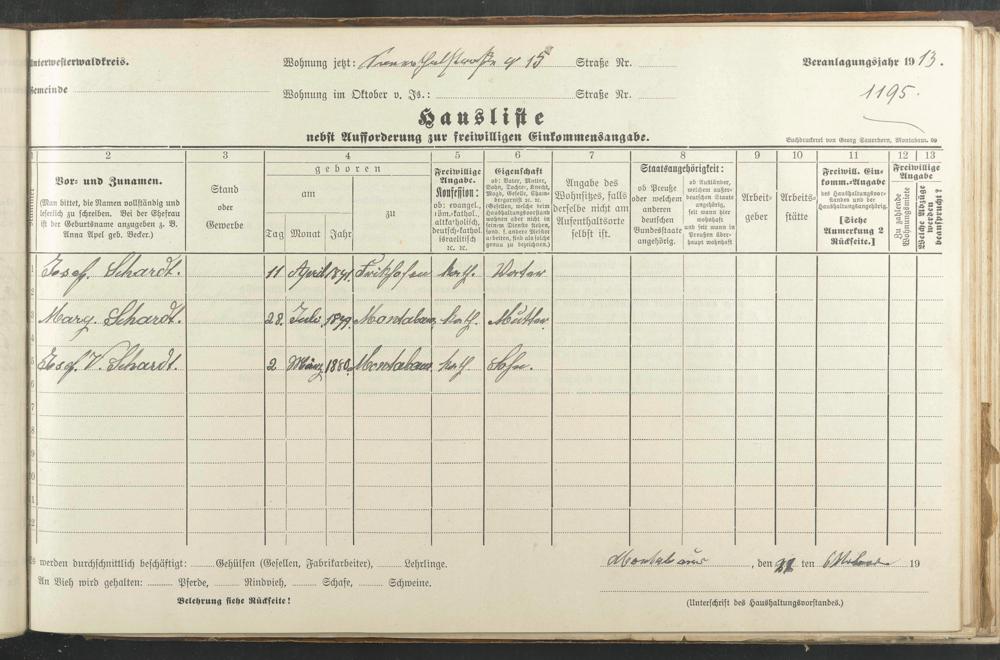 Unterwesterwaldkreis.
Wohnung jetzt: 15 Straße Nr.
Veranlagungsjahr 1913.
Gemeinde
Wohnung im Oktober v. Js.: Straße Nr.
1195.
Hausliste
nebst Aufforderung zur freiwilligen Einkommensangabe.
Buchdruckerei von Georg Sauerborn, Montabaur.
1 2 3 4 5 6 7 8 9 10 11 12 13
Vor- und Zunamen.
(Man bittet, die Namen vollständig und
leserlich zu schreiben. Bei der Ehefrau
ist der Geburtsname anzugeben z. B.
Anna Apel geb. Becker.)
Stand
oder
Gewerbe
geboren
am
zu
Tag Monat Jahr
Freiwillige
Angabe.
Konfession:
ob: evangel.,
röm.-kathol.,
altkatholisch,
deutsch-kathol.
israelitisch
ꝛc. ꝛc.
Eigenschaft
ob: Vater, Mutter,
Sohn, Tochter, Knecht,
Magd, Geselle, Cham-
bergarnist ꝛc. ꝛc.
(Gesellen, welche beim
Haushaltungsvorstand
wohnen aber nicht in
seinem Dienste stehen,
sond. f. andere Meister
arbeiten, sind als solche
genau zu bezeichnen.)
Angabe des
Wohnsitzes, falls
derselbe nicht am
Aufenthaltsorte
selbst ist.
Staatsangehörigkeit:
ob Preuße
oder welchem
anderen
deutschen
Bundesstaate
angehörig.
ob Ausländer,
welchem außer-
deutschen Staate
angehörig,
seit wann hier
wohnhaft
und seit wann in
Preußen über-
haupt wohnhaft
Arbeit-
geber
Arbeits-
stätte
Freiwill. Ein-
komm.-Angabe
des Haushaltungsvor-
standes und der
Haushaltungsangehörig.
[Siehe
Anmerkung 2
Rückseite.]
Freiwillige
Angabe
Zu zahlende
Wohnungsmiete
Welche Abzüge
werden
beansprucht?
1 Josef. Schardt. 11 April 1841. Frickhofen kath. Vater
2
3 Marg. Schardt. 28. Juli 1839. Montabaur kath. Mutter
4
5 Josf. V. Schardt. 2 März 1880. Montabaur kath. Sohn.
6
7
8
9
10
11
12
Es werden durchschnittlich beschäftigt: Gehülfen (Gesellen, Fabrikarbeiter), Lehrlinge.
Montabaur, den 22 ten Oktober 19
An Vieh wird gehalten: Pferde, Rindvieh, Schafe, Schweine.
Belehrung siehe Rückseite!
(Unterschrift des Haushaltungsvorstandes.)